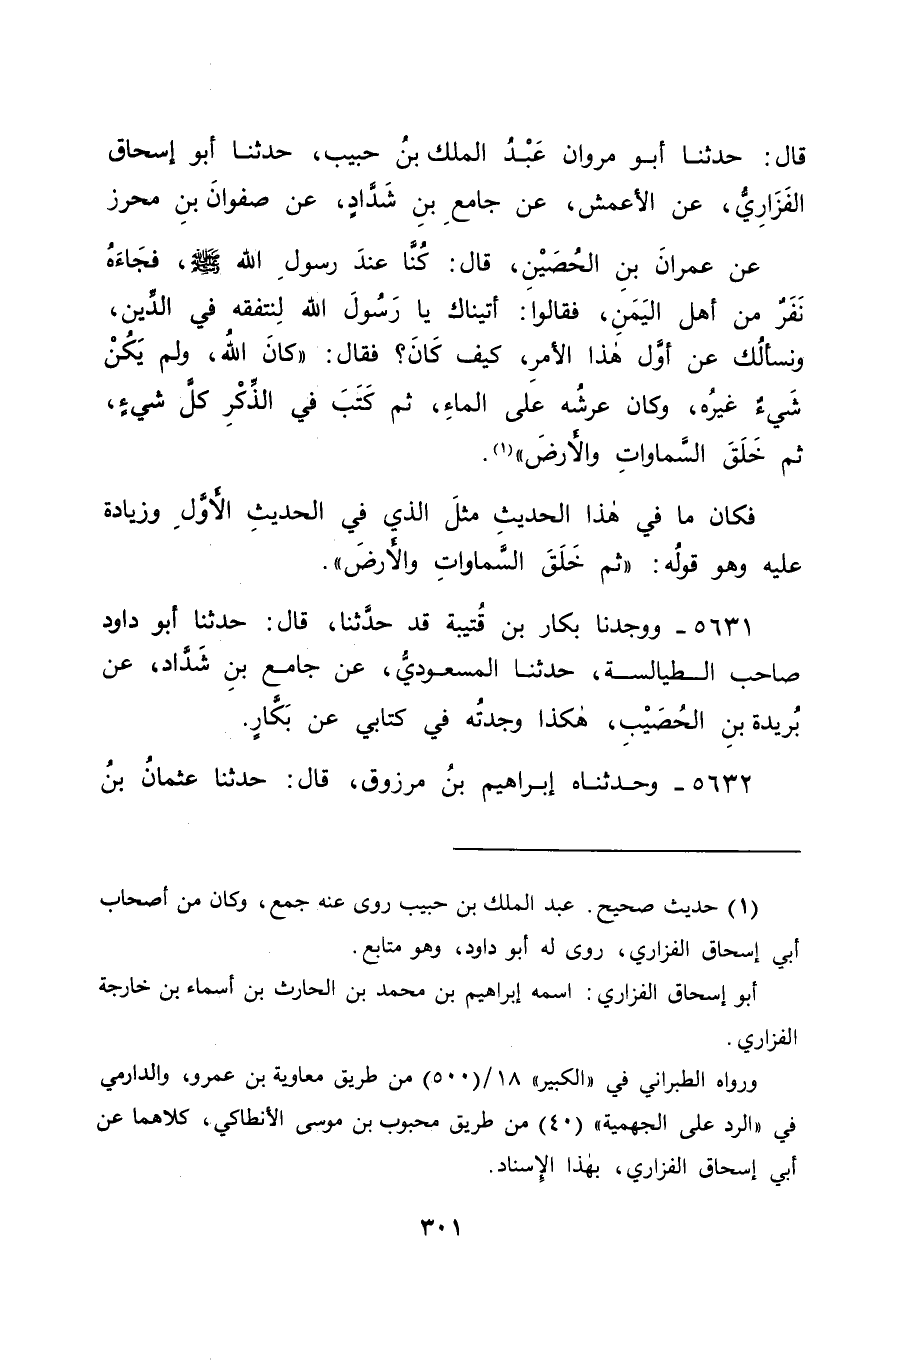 قال: حدثنا أبو مروان عَبْدُ الملك بنُ حبيب، حدثنا أبو إسحاق
الفَزَارِيُّ، عن الأعمش، عن جامعِ بنِ شَدَّادٍ، عن صفوانَ بنِ محرز
عن عمرانَ بنِ الحُصَيْنِ، قال: كُنَّا عندَ رسولِ الله ﷺ، فجَاءَهُ
نَفَرٌ من أهل اليَمَنِ، فقالوا: أتيناك يا رَسُولَ الله لِنتفقه في الدِّين،
ونسألُك عن أوَّل هٰذا الأمرِ، كيف كَانَ؟ فقال: «كانَ اللهُ، ولم يَكُنْ
شَيءٌ غيرُه، وكان عرشُه على الماءِ، ثم كَتَبَ في الذِّكْرِ كلَّ شيءٍ،
ثم خَلَقَ السَّماواتِ والأَرضَ»(١).
فكان ما في هٰذا الحديثِ مثلَ الذي في الحديثِ الأَوَّلِ وزيادة
عليه وهو قولُه: «ثم خَلَقَ السَّماواتِ والأَرضَ».
٥٦٣١ ـ ووجدنا بكار بن قُتيبة قد حدَّثنا، قال: حدثنا أبو داود
صاحب الطيالسة، حدثنا المسعوديُّ، عن جامع بنِ شَدَّاد، عن
بُريدة بنِ الحُصَيْبِ، هٰكذا وجدتُه في كتابي عن بَكَّارٍ.
٥٦٣٢ ـ وحدثناه إبراهيم بنُ مرزوق، قال: حدثنا عثمانُ بنُ
(١) حديث صحيح. عبد الملك بن حبيب روى عنه جمع، وكان من أصحاب
أبي إسحاق الفزاري، روى له أبو داود، وهو متابع.
أبو إسحاق الفزاري: اسمه إبراهيم بن محمد بن الحارث بن أسماء بن خارجة
الفزاري.
ورواه الطبراني في «الكبير» ١٨/(٥٠٠) من طريق معاوية بن عمرو، والدارمي
في «الرد على الجهمية» (٤٠) من طريق محبوب بن موسى الأنطاكي، كلاهما عن
أبي إسحاق الفزاري، بهٰذا الإِسناد.
٣٠١